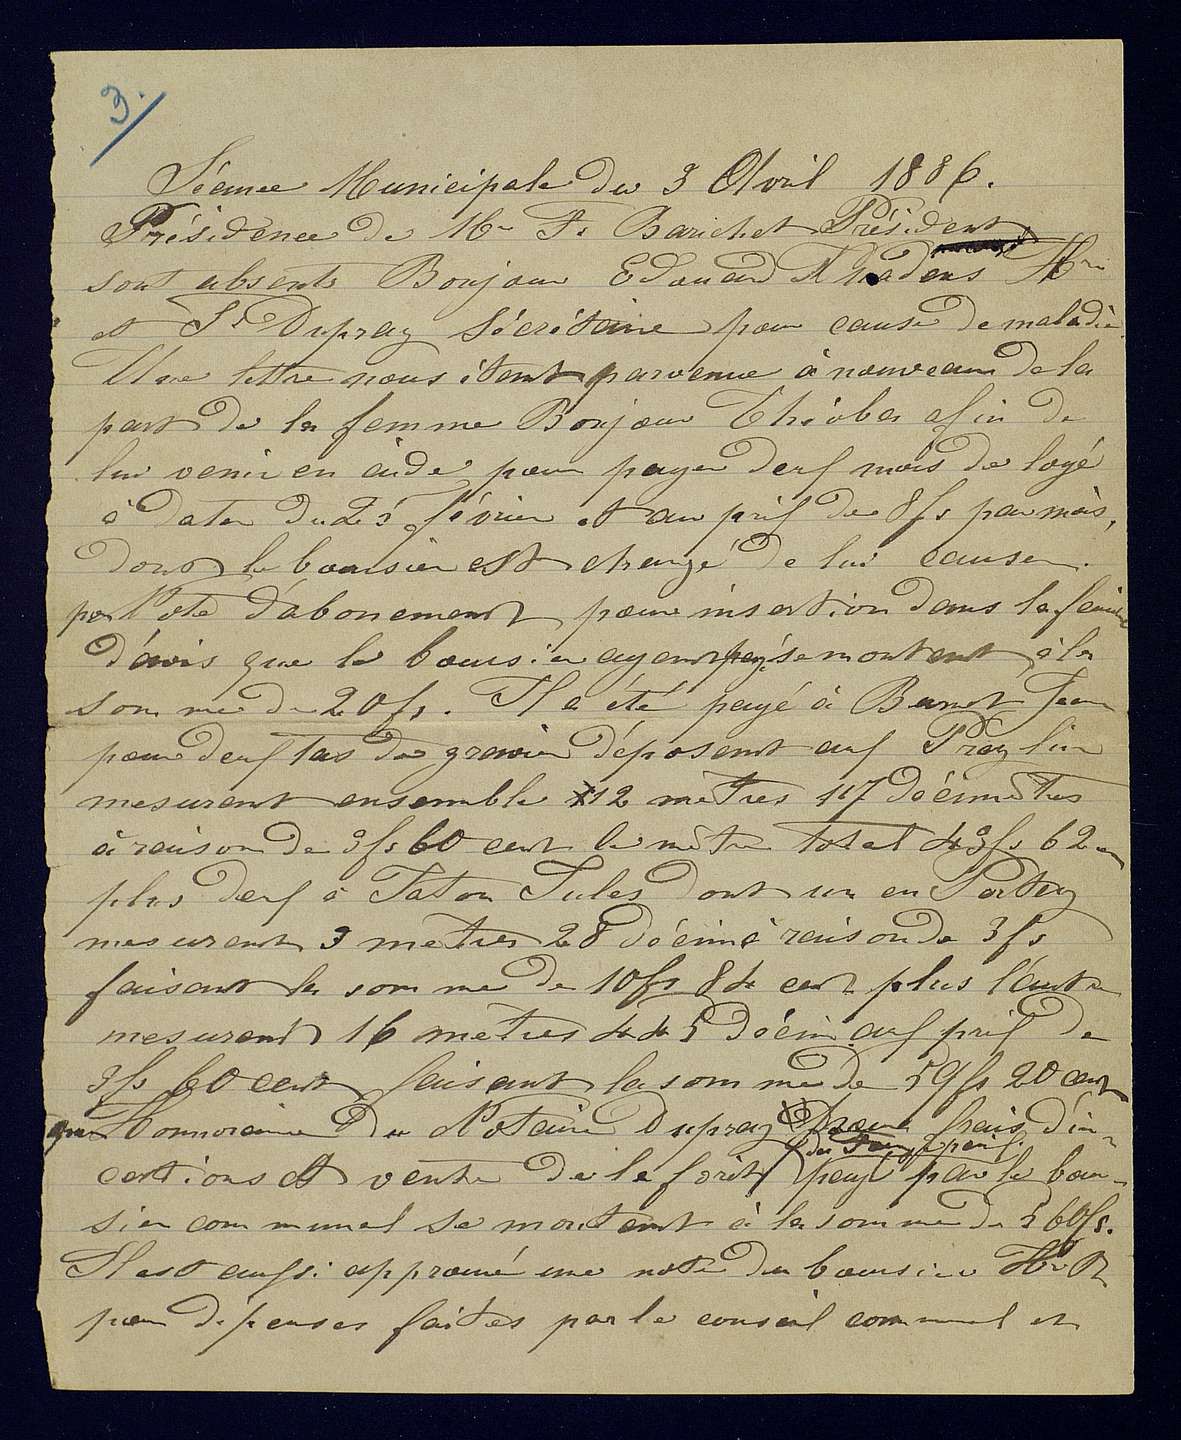 3.
Séance Municipale du 3 Avril 1886.
Présidence de Mr Fs Barichet Président
sont absents Bonjour Edouard
et Fs Dupraz Sécrétaire pour cause de maladie
Une lettre nous étant parvenue à nouveau de la
part de la femme Bonjour Théobes afin de
lui venir en aide pour payer deuf mois de loyé
à dater du 25 février et au prif de 8fs par mois,
dont le boursier est chargé de lui causer.
Note d'abonement pour insertion dans la feuille
d'avis que le boursier ayant payé se montant à la
somme de 20fs. Il a été payé à Jean
pour deuf tas de gravier déposent auf Prazlin
mesurent ensemble 12 mètres 117 décimètres
à raison de 3fs 60 cent le mètre total 43fs 62
plus deuf à Taton Jules dont un en
mesurent 3 mètres 28 décim à raison de 3fs
faisant la somme de 10fs 84 cent plus l'autre
mesurent 16 mètres 445 décim auf prif de
3fs 60 cent faisant la somme de 59fs 20 cent
Honnoraire du Notaire Dupraz pour frais d'in-
certions et vente de la forêt payé par le bour-
sier communal se montant à la somme de 560fs.
Il est aufsi approuvé une note du boursier
pour dépenses faites par le conseil communal et